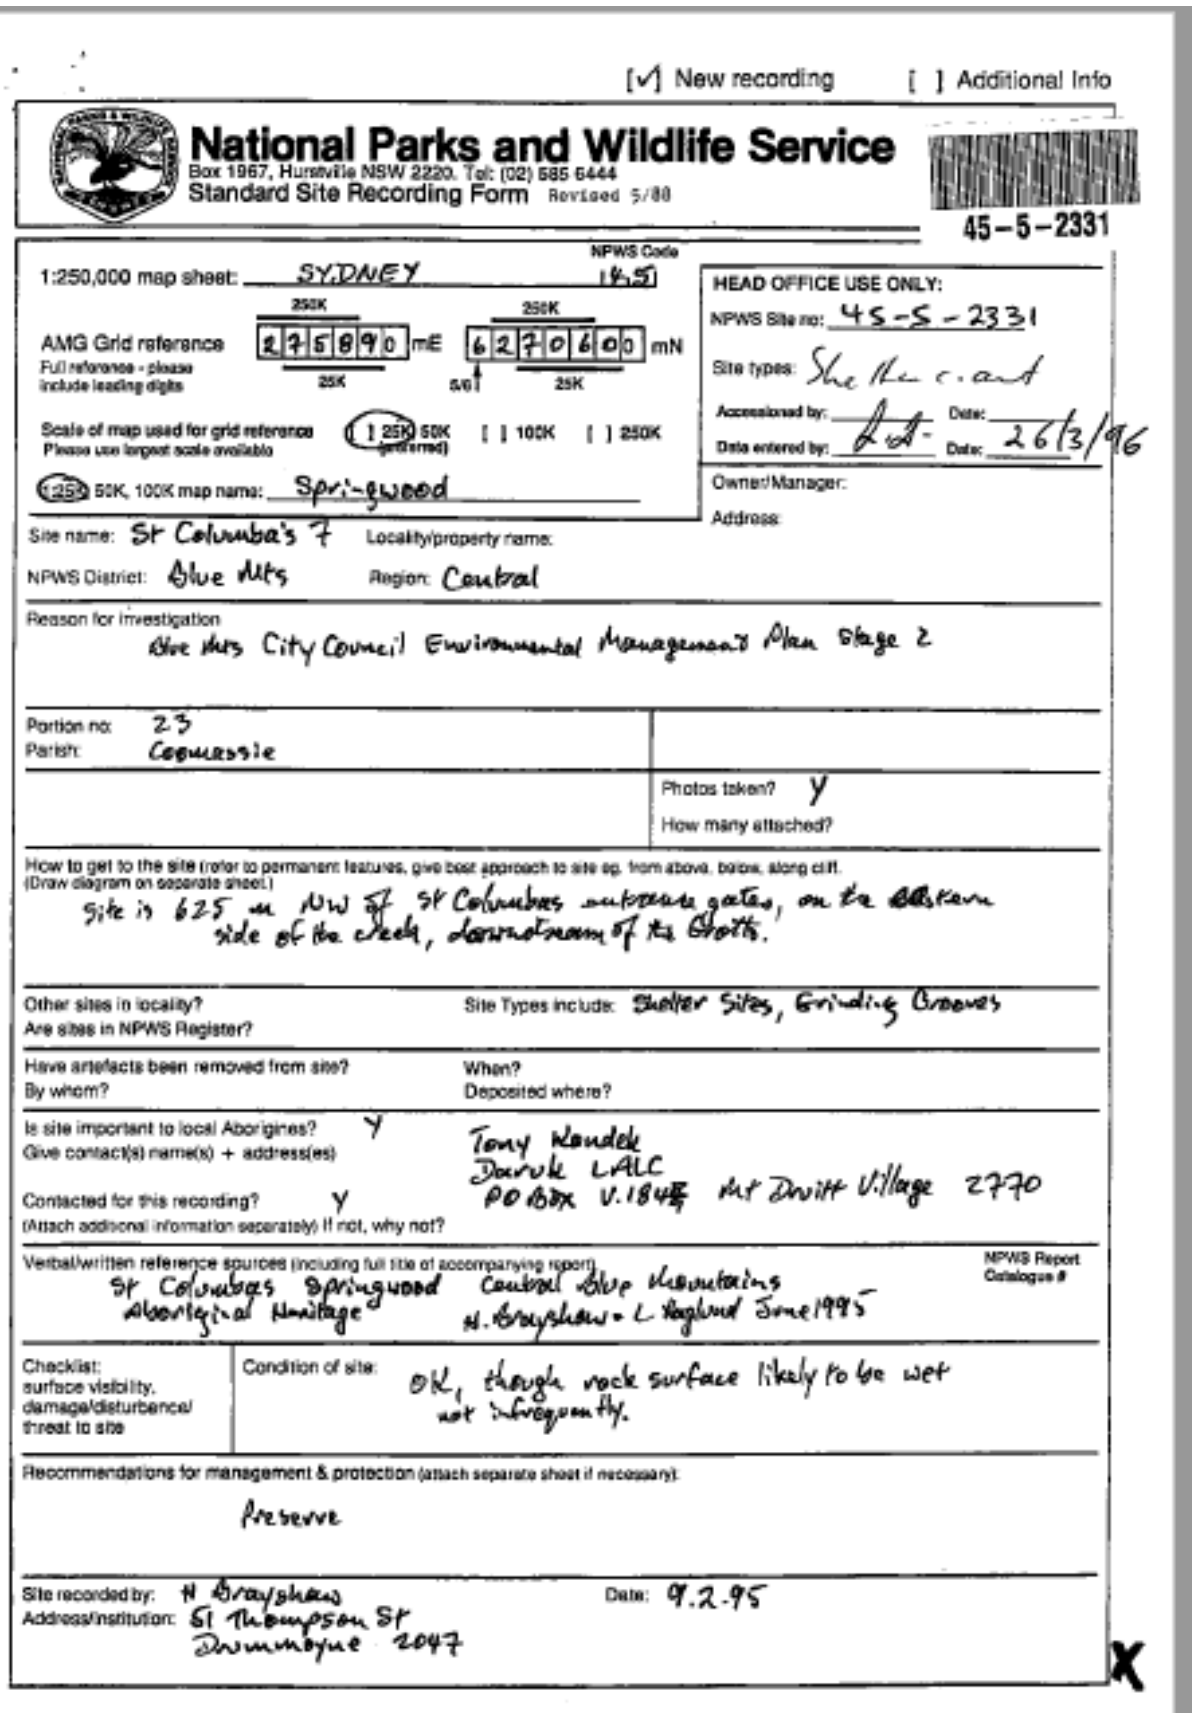 [✓] New recording [ ] Additional Info
National Parks and Wildlife Service
Box 1967, Hurstville NSW 2220. Tel: (02) 585 6444
Standard Site Recording Form Revised 5/88
45-5-2331
NPWS Code
1:250,000 map sheet: SYDNEY 145
HEAD OFFICE USE ONLY:
NPWS Site no: 45-5-2331
250K 250K
AMG Grid reference 275890 mE 6270600 mN
Full reference - please
include leading digits
25K 5/6 25K
Site types: Shelter c. art
Accessioned by: Date:
Data entered by: Date: 26/3/96
Scale of map used for grid reference [ ] 25K 50K [ ] 100K [ ] 250K
Please use largest scale available (preferred)
1:25K 50K, 100K map name: Springwood
Owner/Manager:
Address:
Site name: St Columba's 7 Locality/property name:
NPWS District: Blue Mts Region: Central
Reason for investigation
Blue Mts City Council Environmental Management Plan Stage 2
Portion no: 23
Parish: Coomassie
Photos taken? Y
How many attached?
How to get to the site (refer to permanent features, give best approach to site eg. from above, below, along cliff.
(Draw diagram on separate sheet.)
Site is 625 m NW of St Columbas entrance gates, on the eastern
side of the creek, downstream of the Grotto.
Other sites in locality? Site Types include: Shelter Sites, Grinding Grooves
Are sites in NPWS Register?
Have artefacts been removed from site? When?
By whom? Deposited where?
Is site important to local Aborigines? Y
Give contact(s) name(s) + address(es)
Tony
Daruk LALC
PO Box Mt Druitt Village 2770
Contacted for this recording? Y
(Attach additional information separately) If not, why not?
Verbal/written reference sources (including full title of accompanying report) NPWS Report
Catalogue #
St Columbas Springwood Central Blue Mountains
Aboriginal Heritage H. Brayshaw + L. June 1995
Checklist:
surface visibility,
damage/disturbance/
threat to site
Condition of site: OK, though rock surface likely to be wet
not infrequently.
Recommendations for management & protection (attach separate sheet if necessary):
Preserve
Site recorded by: H Brayshaw Date: 9.2.95
Address/institution: 51 Thompson St
Drummoyne 2047
X